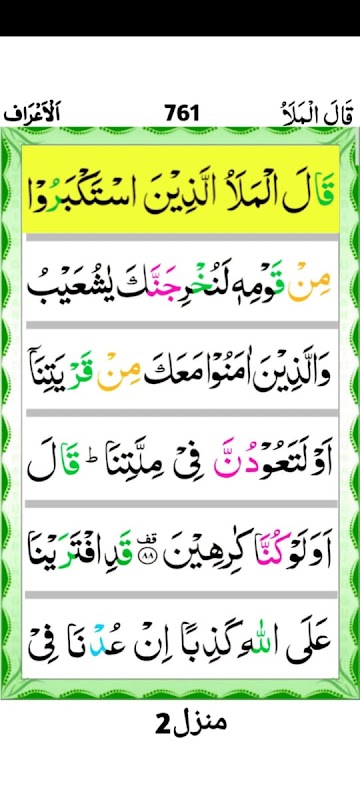 قَالَ الْمَلَاُ 761 اَلْاَعْرَاف
قَالَ الْمَلَاُ الَّذِيْنَ اسْتَكْبَرُوْا
مِنْ قَوْمِهٖ لَنُخْرِجَنَّكَ يٰشُعَيْبُ
وَالَّذِيْنَ اٰمَنُوْا مَعَكَ مِنْ قَرْيَتِنَاۤ
اَوْ لَتَعُوْدُنَّ فِيْ مِلَّتِنَا ؕ قَالَ
اَوَلَوْ كُنَّا كٰرِهِيْنَ ۟قف ﴿۸۸﴾ قَدِ افْتَرَيْنَا
عَلَى اللّٰهِ كَذِبًا اِنْ عُدْنَا فِيْ
منزل 2